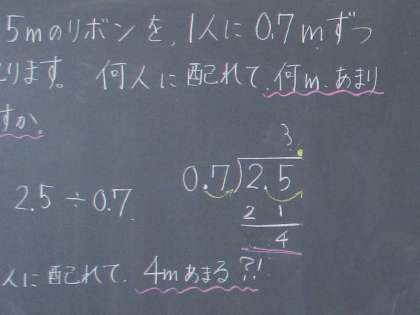 5mのリボンを、1人に0.7mずつ
ります。何人に配れて、何m、あまり
すか。
3.
0.7)2.5
2.5÷0.7
2 1
4
人に配れて、4mあまる?!